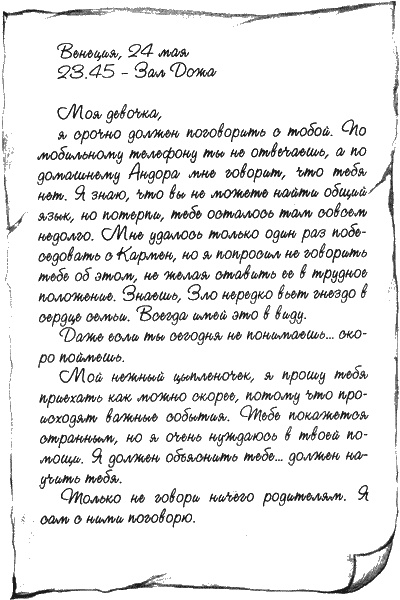 Венеция, 24 мая
23.45 – Зал Дожа
Моя девочка,
я срочно должен поговорить с тобой. По
мобильному телефону ты не отвечаешь, а по
домашнему Андора мне говорит, что тебя
нет. Я знаю, что вы не можете найти общий
язык, но потерпи, тебе осталось там совсем
недолго. Мне удалось только один раз побе-
седовать с Кармен, но я попросил не говорить
тебе об этом, не желая ставить ее в трудное
положение. Знаешь, Зло нередко вьет гнездо в
сердце семьи. Всегда имей это в виду.
Даже если ты сегодня не понимаешь... ско-
ро поймешь.
Мой нежный цыпленочек, я прошу тебя
приехать как можно скорее, потому что про-
исходят важные события. Тебе покажется
странным, но я очень нуждаюсь в твоей по-
мощи. Я должен объяснить тебе... должен на-
учить тебя.
Только не говори ничего родителям. Я
сам с ними поговорю.